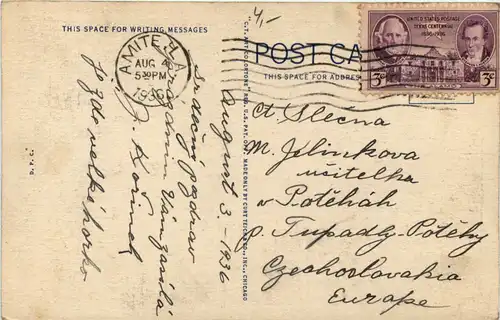 THIS SPACE FOR WRITING MESSAGES
4,-
AMITE, LA.
AUG 4
5 30 PM
1936
August 3. - 1936
Srdečný pozdrav
Vám zasílá
J. Kořínek
Je zde velké horko
D. P. C.
"C.T. ART-COLORTONE" REG. U.S. PAT. OFF. MADE ONLY BY CURT TEICH & CO., INC., CHICAGO
POST CA
THIS SPACE FOR ADDRESS
UNITED STATES POSTAGE
TEXAS CENTENNIAL
1836-1936
3¢
3¢
Ct. Slečna
M. Jelinkova
učitelka
v Potěhách
p. Tupadly-Potěhy
Czechoslovakia
Europe